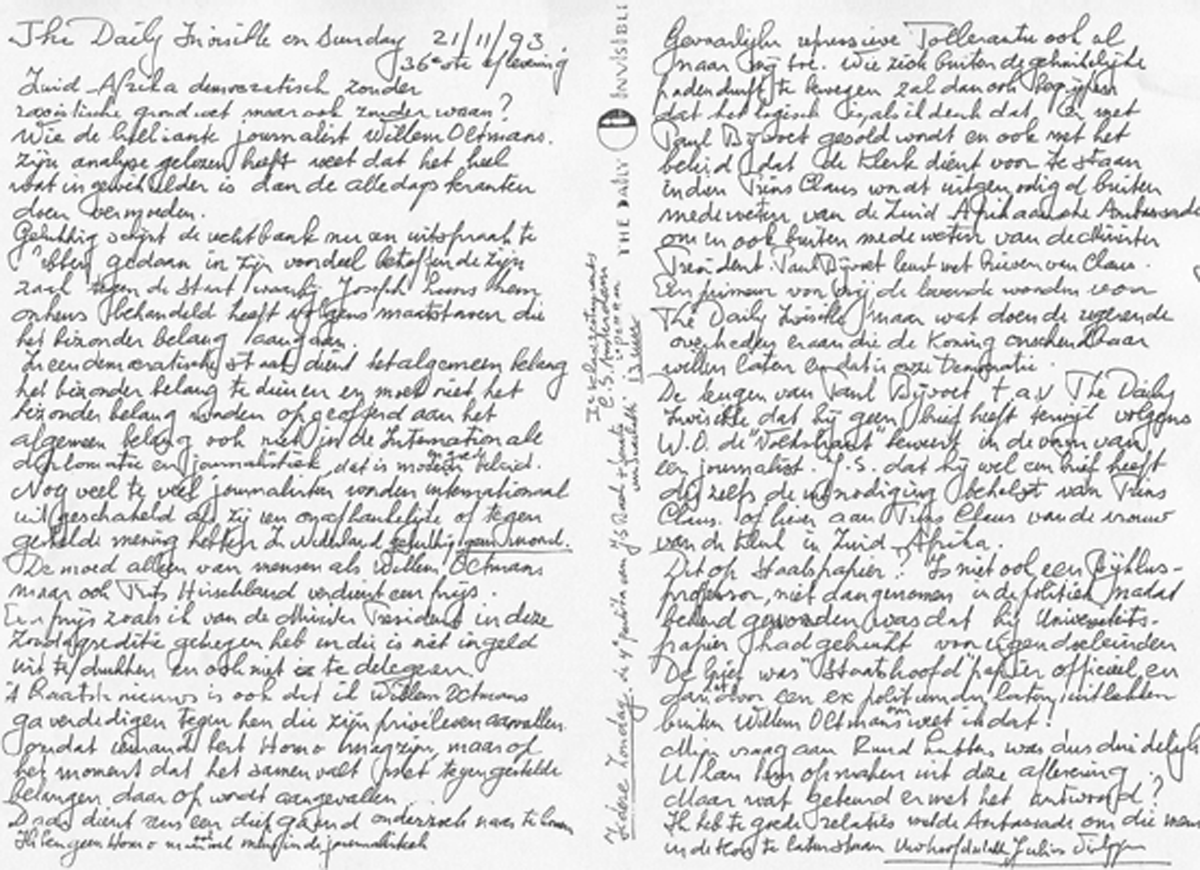 The Daily Invisible on Sunday 21/11/93
36e ste aflevering
Zuid-Afrika democratisch zonder
racistische grondwet maar ook zonder waan?
Wie de briljante journalist Willem Oltmans.
zijn analyse gelezen heeft weet dat het heel
wat ingewikkelder is dan de alledaagse kranten
doen vermoeden.
Gelukkig schijnt de rechtbank nu een uitspraak te
hebben gedaan in zijn voordeel betreffende zijn
zaak tegen de Staat waarbij Joseph Luns hem
onheus behandeld heeft volgens maatstaven die
het bizonder belang aangaan.
In een democratische staat dient het algemeen belang
het bizonder belang te dienen en moet niet het
bizonder belang worden opgeofferd aan het
algemeen belang ook niet in de Internationale
diplomatie en journalistiek, dat is modern beleid.
Nog veel te veel journalisten worden internationaal
uitgeschakeld als zij een onafhankelijke of tegen
gestelde mening hebben in Nederland gelukkig geen moord.
De moed alleen van mensen als Willem Oltmans
maar ook Frits Hirschland verdient een prijs.
Een prijs zoals ik van de Minister President in deze
Zondagseditie gekregen heb en die is niet in geld
uit te drukken en ook niet te delegeren.
't Laatste nieuws is ook dat ik Willem Oltmans
ga verdedigen tegen hen die zijn privéleven aanvallen
omdat iemand best Homo mag zijn, maar op
het moment dat het samen valt met tegengestelde
belangen daar op wordt aangevallen.
Daar dient eens een diepgaand onderzoek naar te komen
Ik ben geen Homo in de journalistiek
THE DAILY INVISIBLE
Iedere Zondag.
13 uur
Gevaarlijke repressieve Tollerantie ook al
naar mij toe. Wie zich buiten de gebruikelijke
paden durft te bewegen zal dan ook begrijpen
dat het logisch is als ik denk dat er met
Paul Bijvoet gesold wordt en ook met het
beleid dat de Klerk dient voor te staan
indien Prins Claus wordt uitgenodigd buiten
medeweten van de Zuid Afrikaansche Ambassade
om en ook buiten medeweten van de Minister
President. Paul Bijvoet leurt met brieven van Claus.
Een primeur voor mij de levende worden voor
The Daily Invisible maar wat doen de regerende
overheden eraan die de Koning onschendbaar
willen laten en dat is onze Democratie.
De leugen van Paul Bijvoet t.a.v The Daily
Invisible dat hij geen brief heeft terwijl volgens
W.O. de "Volkskrant" beweert in de vorm van
een journalist. J.S. dat hij wel een brief heeft
die zelfs de uitnodiging behelst van Prins
Claus. of liever aan Prins Claus van de vrouw
van de Klerk in Zuid-Afrika.
Dit op Staatspapier? Is niet ook een
professor, niet aangenomen in de politiek nadat
bekend geworden was dat hij Universiteits-
papier had gebruikt voor eigen doeleinden
De brief was "Staatshoofd" papier officieel en
dan door een ex politieman laten uitlekken
buiten Willem Oltmans om weet ik dat!
Mijn vraag aan Ruud Lubbers was dus duidelijk
U kan hem opmaken uit deze aflevering
Maar wat gebeurd er met het antwoord?
Ik heb te goede relaties met de Ambassade om die mensen
in de kou te laten staan